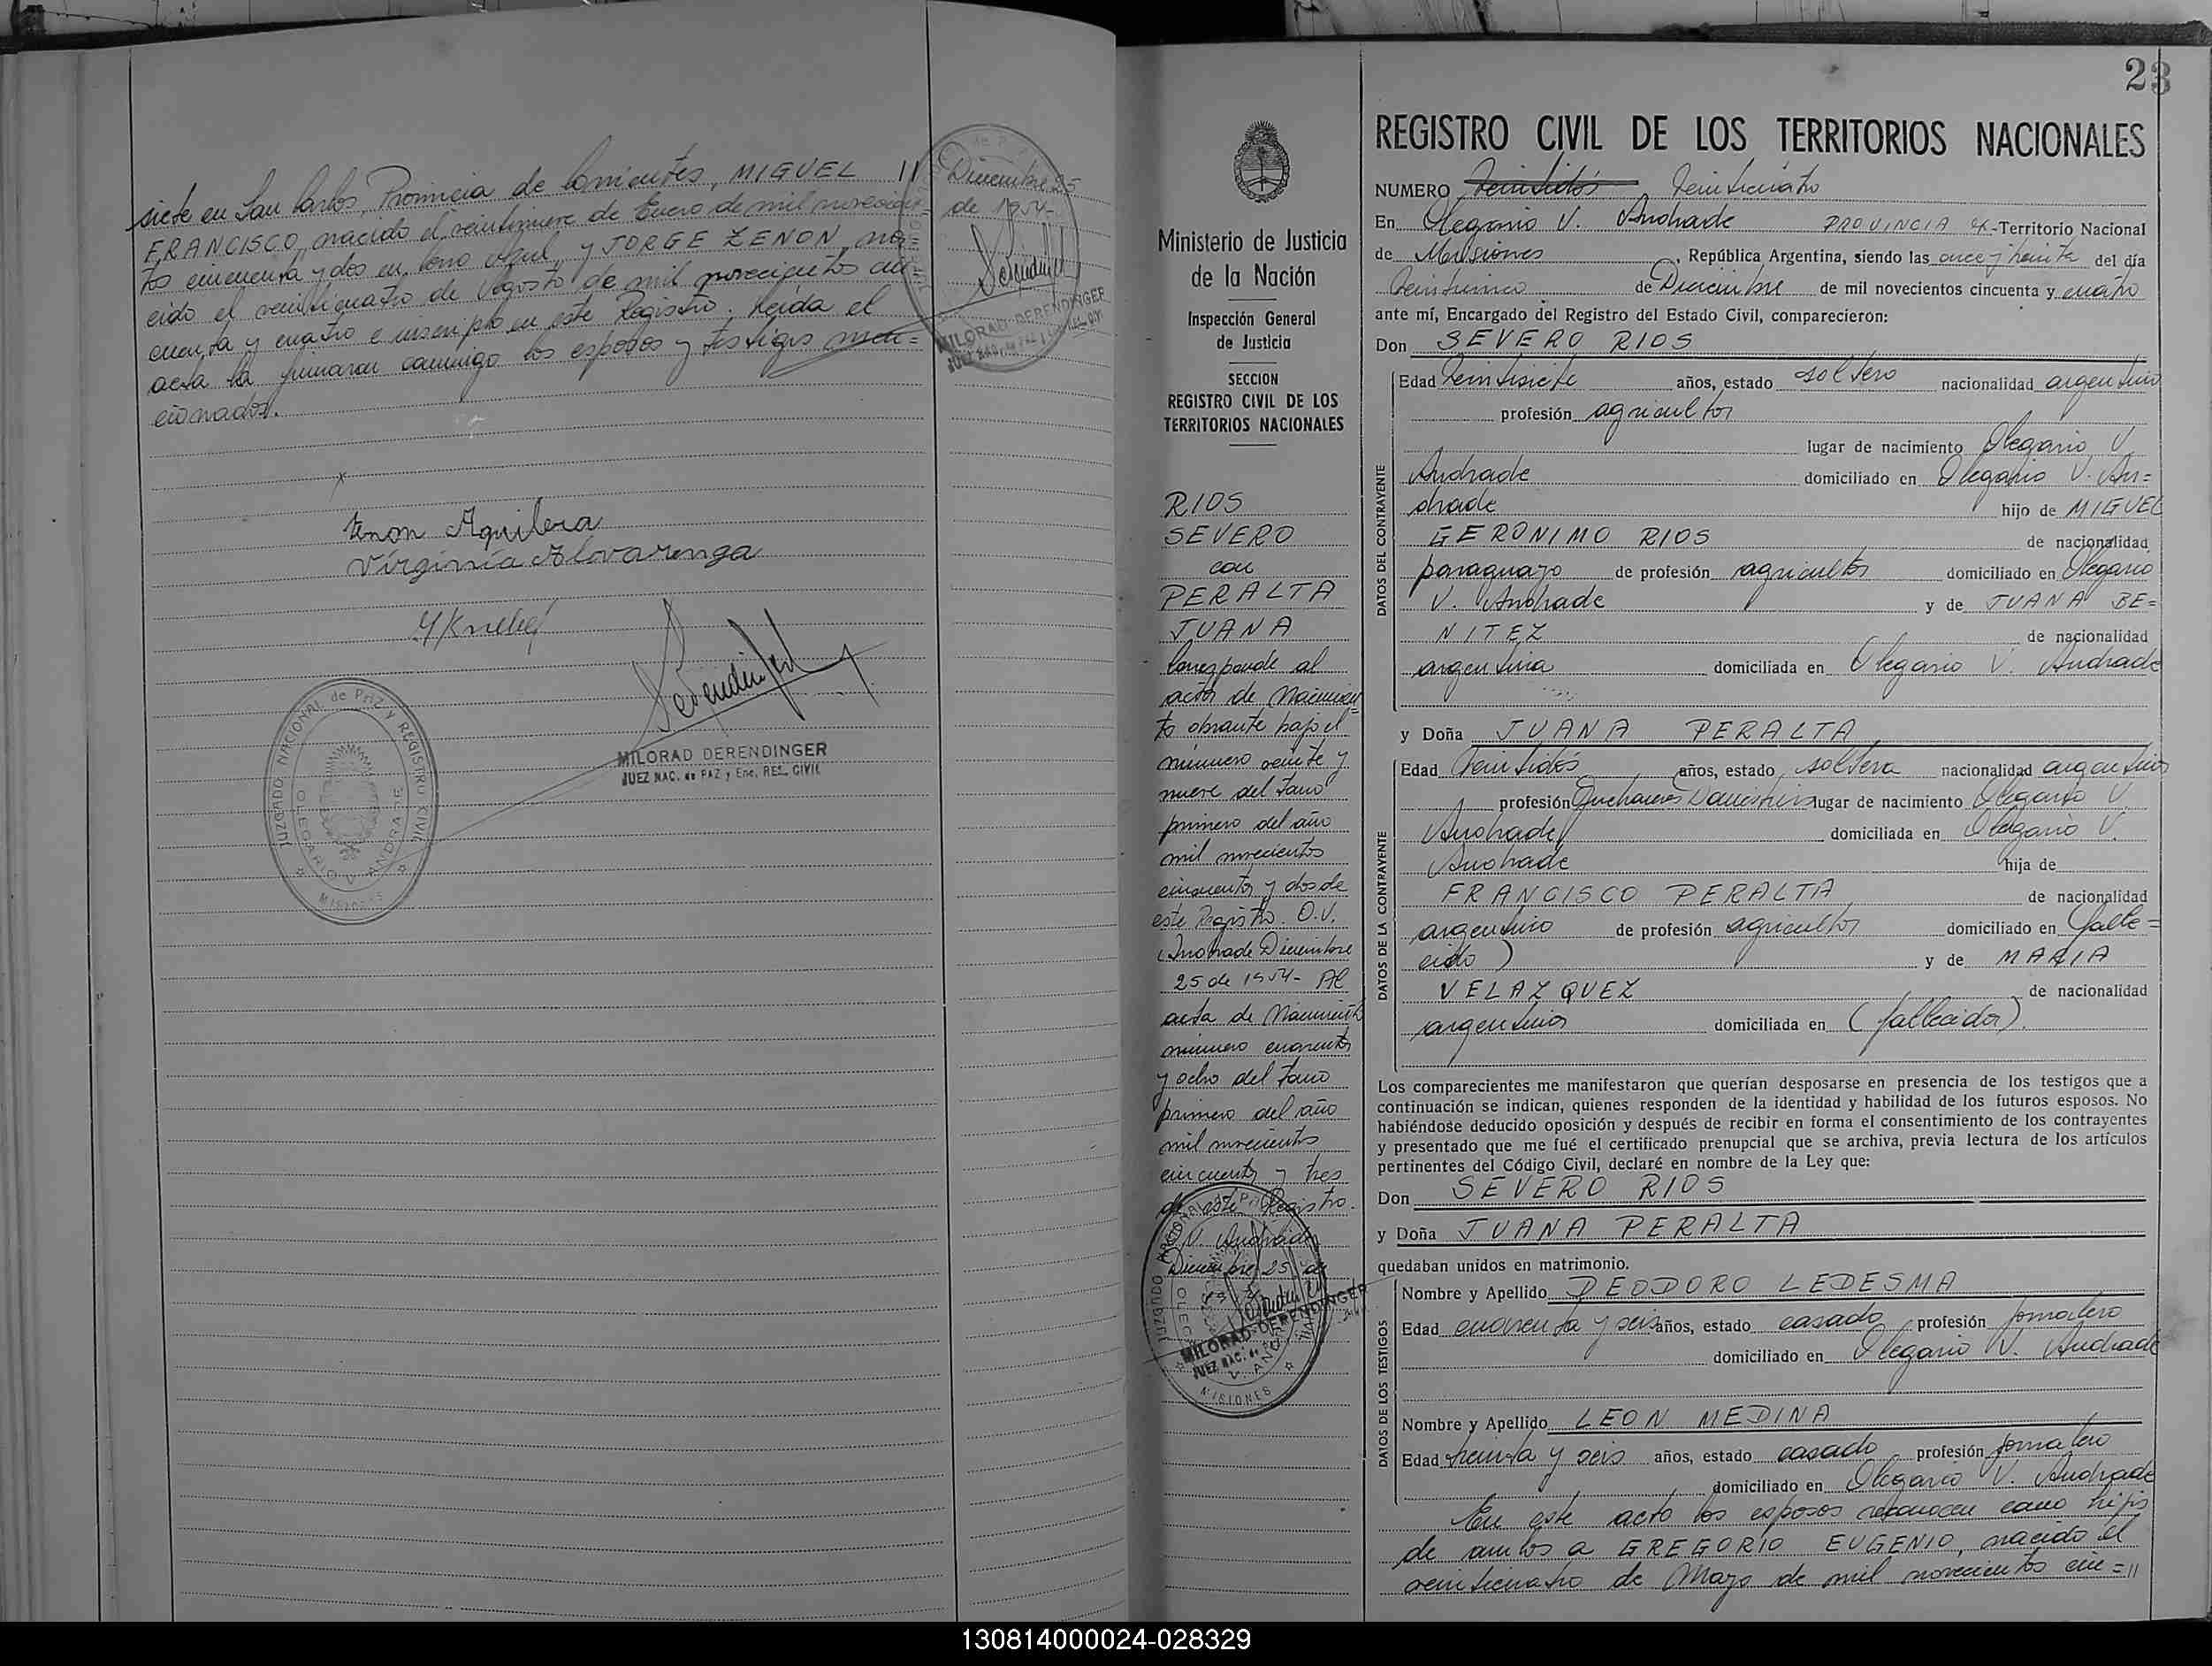 siete en San Carlos, Provincia de Corrientes, MIGUEL
FRANCISCO, nacido el veintinueve de Enero de mil novecien=
tos cincuenta y dos en Cerro Azul, y JORGE ZENON, na=
cido el veinticuatro de Agosto de mil novecientos cin=
cuenta y cuatro e inscripto en este Registro. Leída el
acta la firmaron conmigo los esposos y testigos men=
cionados.
Zenon Aquilera
Virginia Alovarenga
MILORAD DERENDINGER
JUEZ NAC. de PAZ y Enc. REG. CIVIL
JUZGADO NACIONAL de PAZ y REGISTRO CIVIL
OLEGARIO V. ANDRADE
MISIONES
// Diciembre 25
de 1954-
MILORAD DERENDINGER
23
Ministerio de Justicia
de la Nación
Inspección General
de Justicia
SECCION
REGISTRO CIVIL DE LOS
TERRITORIOS NACIONALES
RIOS
SEVERO
con
PERALTA
JUANA
Corresponde al
acta de Nacimien=
to obrante bajo el
número veinte y
nueve del Tomo
primero del año
mil novecientos
cincuenta y dos de
este Registro. O.V.
Andrade Diciembre
25 de 1954- Al
acta de Nacimiento
número cuarenta
y ocho del Tomo
primero del año
mil novecientos
cincuenta y tres
de este Registro.
O.V. Andrade
Diciembre 25 de
MILORAD DERENDINGER
JUEZ NAC. de
MISIONES
REGISTRO CIVIL DE LOS TERRITORIOS NACIONALES
NUMERO Veintidós Veinticuatro
En Olegario V. Andrade PROVINCIA Territorio Nacional
de Misiones, República Argentina, siendo las once y treinta del día
Veinticinco de Diciembre de mil novecientos cincuenta y cuatro
ante mí, Encargado del Registro del Estado Civil, comparecieron:
Don SEVERO RIOS
DATOS DEL CONTRAYENTE
Edad Veintisiete años, estado soltero nacionalidad argentino
profesión agricultor
lugar de nacimiento Olegario V.
Andrade domiciliado en Olegario V. An=
drade hijo de MIGUEL
GERONIMO RIOS de nacionalidad
paraguayo de profesión agricultor domiciliado en Olegario
V. Andrade y de JUANA BE=
NITEZ de nacionalidad
argentina domiciliada en Olegario V. Andrade
y Doña JUANA PERALTA
DATOS DE LA CONTRAYENTE
Edad Veintidós años, estado soltera nacionalidad argentina
profesión Quehaceres Domésticos lugar de nacimiento Olegario V.
Andrade domiciliada en Olegario V.
Andrade hija de
FRANCISCO PERALTA de nacionalidad
argentino de profesión agricultor domiciliado en (falle=
cido) y de MARIA
VELAZQUEZ de nacionalidad
argentina domiciliada en (fallecida).
Los comparecientes me manifestaron que querían desposarse en presencia de los testigos que a
continuación se indican, quienes responden de la identidad y habilidad de los futuros esposos. No
habiéndose deducido oposición y después de recibir en forma el consentimiento de los contrayentes
y presentado que me fué el certificado prenupcial que se archiva, previa lectura de los artículos
pertinentes del Código Civil, declaré en nombre de la Ley que:
Don SEVERO RIOS
y Doña JUANA PERALTA
quedaban unidos en matrimonio.
DATOS DE LOS TESTIGOS
Nombre y Apellido DEODORO LEDESMA
Edad cuarenta y seis años, estado casado profesión jornalero
domiciliado en Olegario V. Andrade
Nombre y Apellido LEON MEDINA
Edad treinta y seis años, estado casado profesión jornalero
domiciliado en Olegario V. Andrade
En este acto los esposos reconocen como hijos
de ambos a GREGORIO EUGENIO, nacido el
veinticuatro de Mayo de mil novecientos cin=//
130814000024-028329